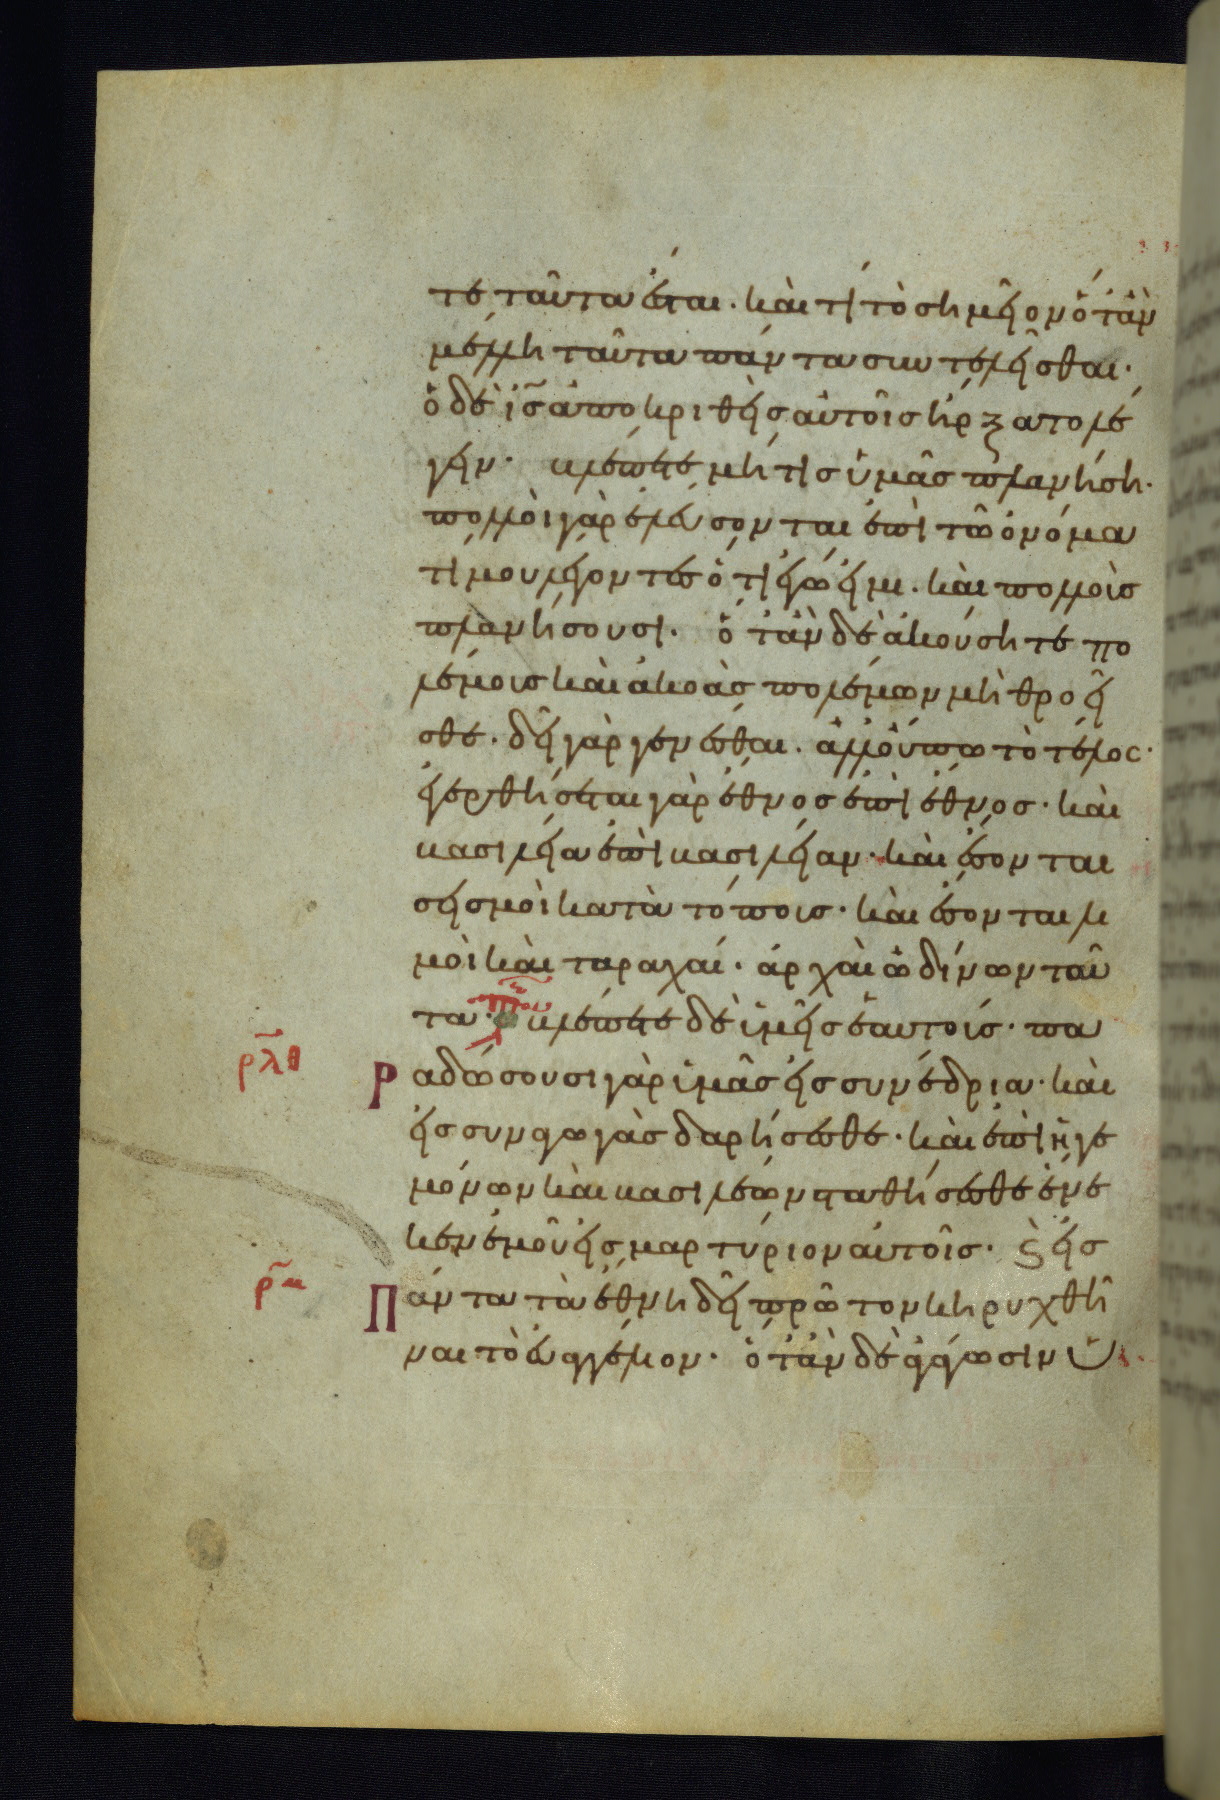 τε ταῦτα ἔσται. καὶ τί τὸ σημεῖον ὅτἂν
μέλλη ταῦτα πάντα συντελεῖσθαι.
ὁ δὲ ἰ̅σ̅ ἀποκριθεὶς αὐτοῖς ἤρξατο λέ
γειν. βλέπετε μή τις ὑμᾶς πλανήση.
πολλοὶ γὰρ ἐλεύσονται ἐπὶ τῶ ὀνόμα
τί μου λέγοντες ὅτι ἐγώ εἰμι. καὶ πολλοὺς
πλανήσουσι. ὅτἂν δὲ ἀκούσητε πο
λέμους καὶ ἀκοὰς πολέμων μὴ θροεῖ
σθε. δεῖ γὰρ γενέσθαι. ἀλλ' οὔπω τὸ τέλος.
ἐγερθήσεται γὰρ ἔθνος ἐπὶ ἔθνος. καὶ
βασιλεία ἐπὶ βασιλείαν. καὶ ἔσονται
σεισμοὶ κατὰ τόπους. καὶ ἔσονται λι
μοὶ καὶ ταραχαί. ἀρχαὶ ὠδίνων ταῦ
τα. βλέπετε δὲ ὑμεῖς ἑαυτούς. πα
ρ̅λ̅θ̅ Ραδώσουσι γὰρ ὑμᾶς εἰς συνέδρια. καὶ
εἰς συναγωγὰς δαρήσεσθε. καὶ ἐπὶ ἡγε
μόνων καὶ βασιλέων σταθήσεσθε ἕνε
κεν ἐμοῦ εἰς μαρτύριον αὐτοῖς. ϗ εἰς
ρ̅μ̅ Πάντα τὰ ἔθνη δεῖ πρῶτον κηρυχθῆ
ναι τὸ εὐαγγέλιον. ὅτἂν δὲ ἀγάγωσιν ὑ